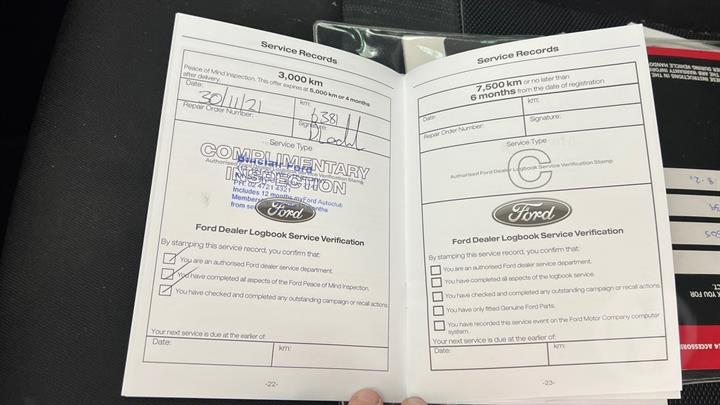 Service Records
3,000 km
Peace of Mind Inspection. This offer expires at 5,000 km or 4 months
after delivery.
Date:
km:
30/11/21
6381
Repair Order Number:
Signature:
Service Type
COMPLIMENTARY
INSPECTION
Authorised Ford Dealer Logbook Service Verification Stamp
Sinclair Ford
PH: 02 4721 4321
Includes 12 months myFord Autoclub
from
Ford
Ford Dealer Logbook Service Verification
By stamping this service record, you confirm that:
You are an authorised Ford dealer service department.
You have completed all aspects of the Ford Peace of Mind Inspection.
You have checked and completed any outstanding campaign or recall actions.
Your next service is due at the earlier of:
Date:
km:
-22-
Service Records
7,500 km or no later than
6 months from the date of registration
Date:
km:
Repair Order Number:
Signature:
Service Type
C
Authorised Ford Dealer Logbook Service Verification Stamp
Ford
Ford Dealer Logbook Service Verification
By stamping this service record, you confirm that:
You are an authorised Ford dealer service department.
You have completed all aspects of the logbook service.
You have checked and completed any outstanding campaign or recall actions
You have only fitted Genuine Ford Parts.
You have recorded this service event on the Ford Motor Company computer
system.
Your next service is due at the earlier of:
Date:
km:
-23-